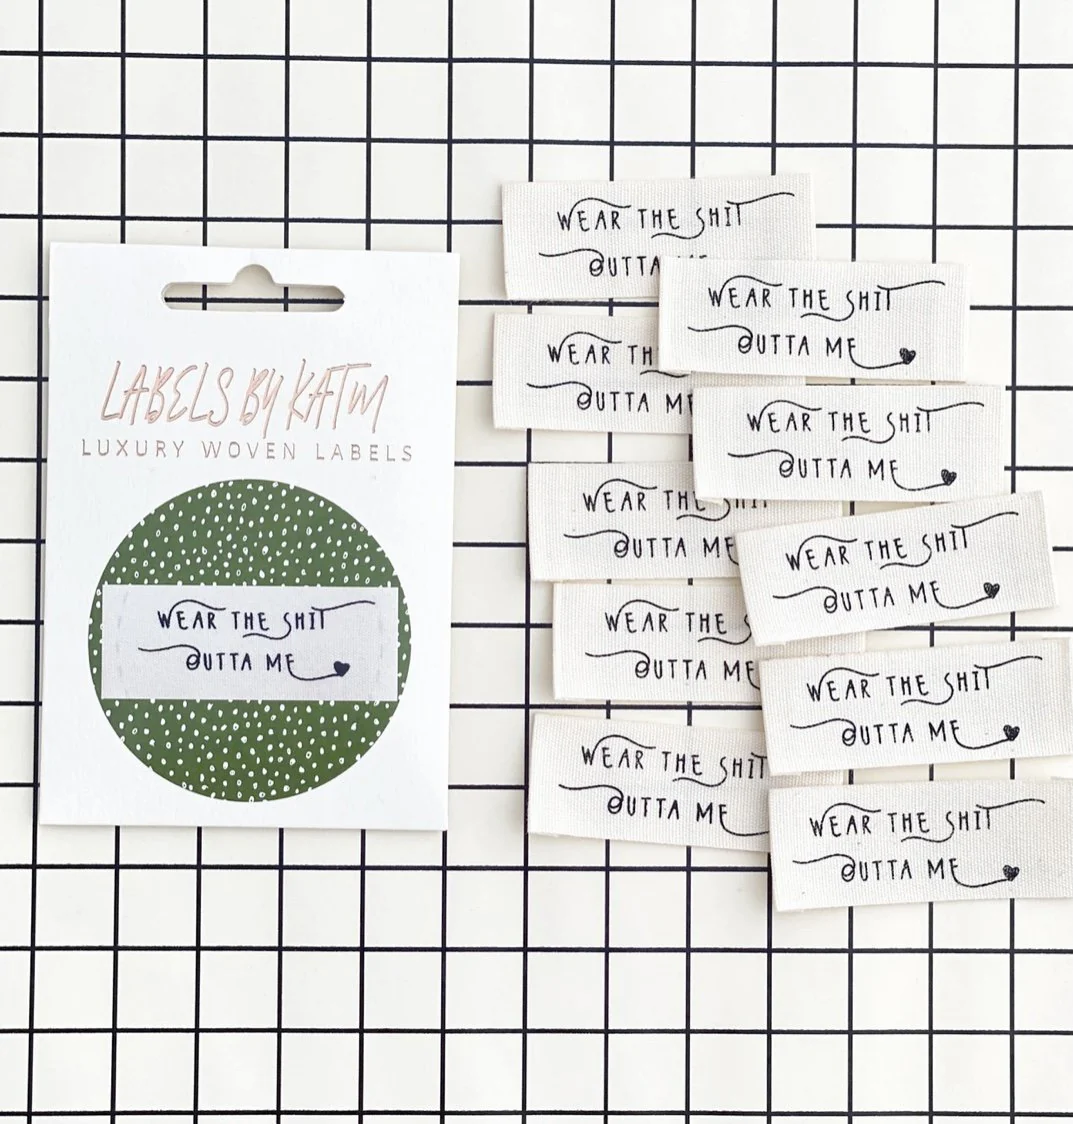 LABELS BY KATM
LUXURY WOVEN LABELS
WEAR THE SHIT
OUTTA ME
WEAR THE SHIT
OUTTA
WEAR THE SHIT
OUTTA ME
WEAR TH
OUTTA M
WEAR THE SHIT
OUTTA ME
WEAR THE SHIT
OUTTA ME
WEAR THE SHIT
OUTTA ME
WEAR THE S
OUTTA ME
WEAR THE SHIT
OUTTA ME
WEAR THE SHIT
OUTTA ME
WEAR THE SHIT
OUTTA ME